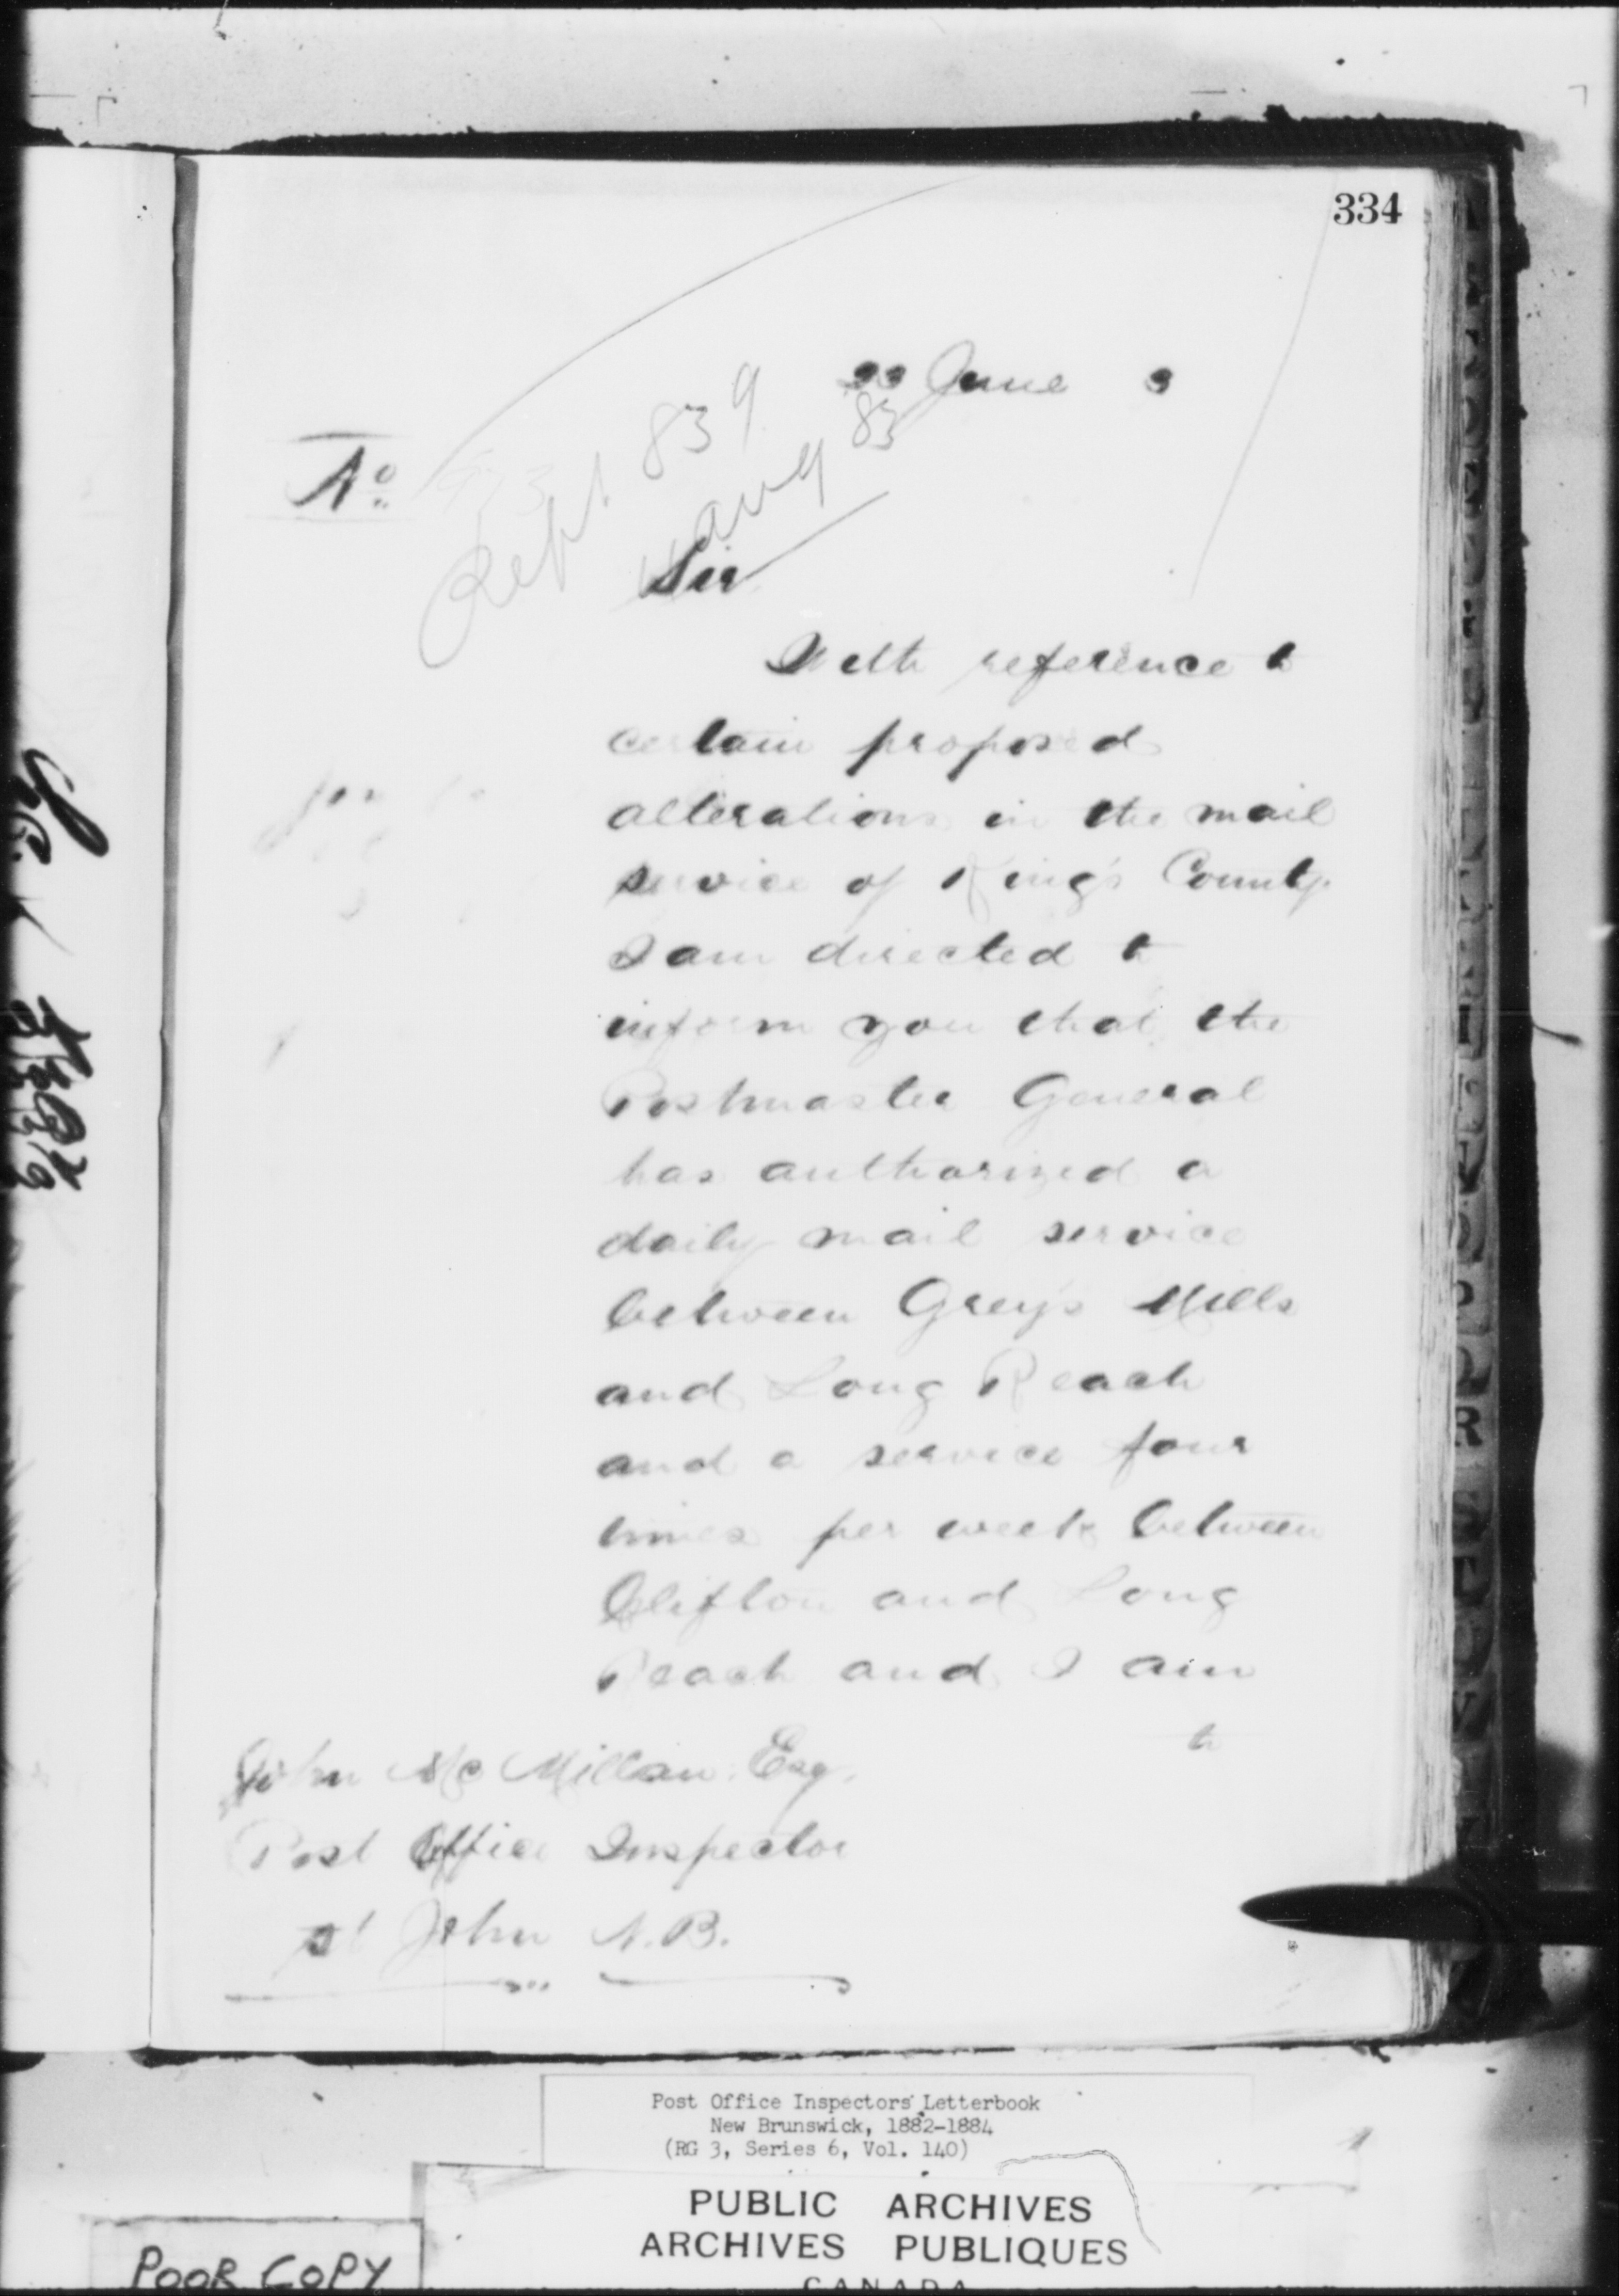 334
22 June 3
No
Rept. 839
4 Aug 83
Sir
With reference to
certain proposed
alterations in the mail
service of King's County
I am directed to
inform you that the
Postmaster General
has authorized a
daily mail service
between Grey's Mills
and Long Reach
and a service four
times per week between
Clifton and Long
Reach and I am
to
John McMillan Esq.
Post Office Inspector
St John N.B.
Post Office Inspectors' Letterbook
New Brunswick, 1882-1884
(RG 3, Series 6, Vol. 140)
PUBLIC ARCHIVES
ARCHIVES PUBLIQUES
CANADA
POOR COPY